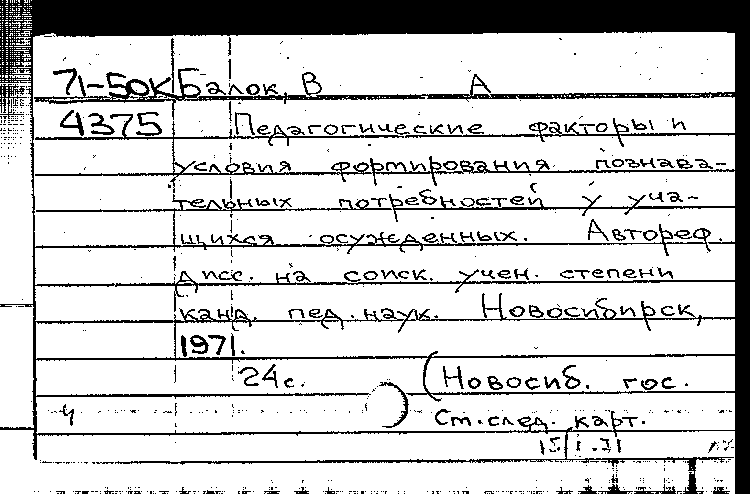 71-50К Балок, В А
4375 Педагогические факторы и
условия формирования познава-
тельных потребностей у уча-
щихся осужденных. Автореф.
дисс. на соиск. учен. степени
канд. пед. наук. Новосибирск,
1971.
24 с. (Новосиб. гос.
Ч См. след. карт.